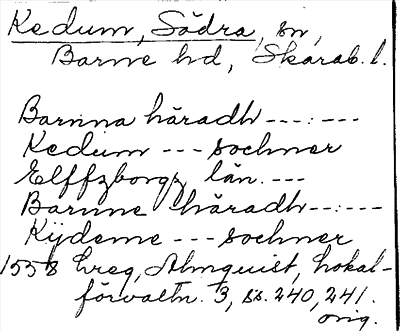 Kedum, Södra, sn,
Barne hd, Skarab. l.
Barnna häradh ---:---
Kedum --- sochner
Elffzborgz län. ---
Barnne häradh --:---
Kijdeme --- sochner
1558 Almquist, Lokal-
förvaltn. 3, ss. 240, 241.
orig.